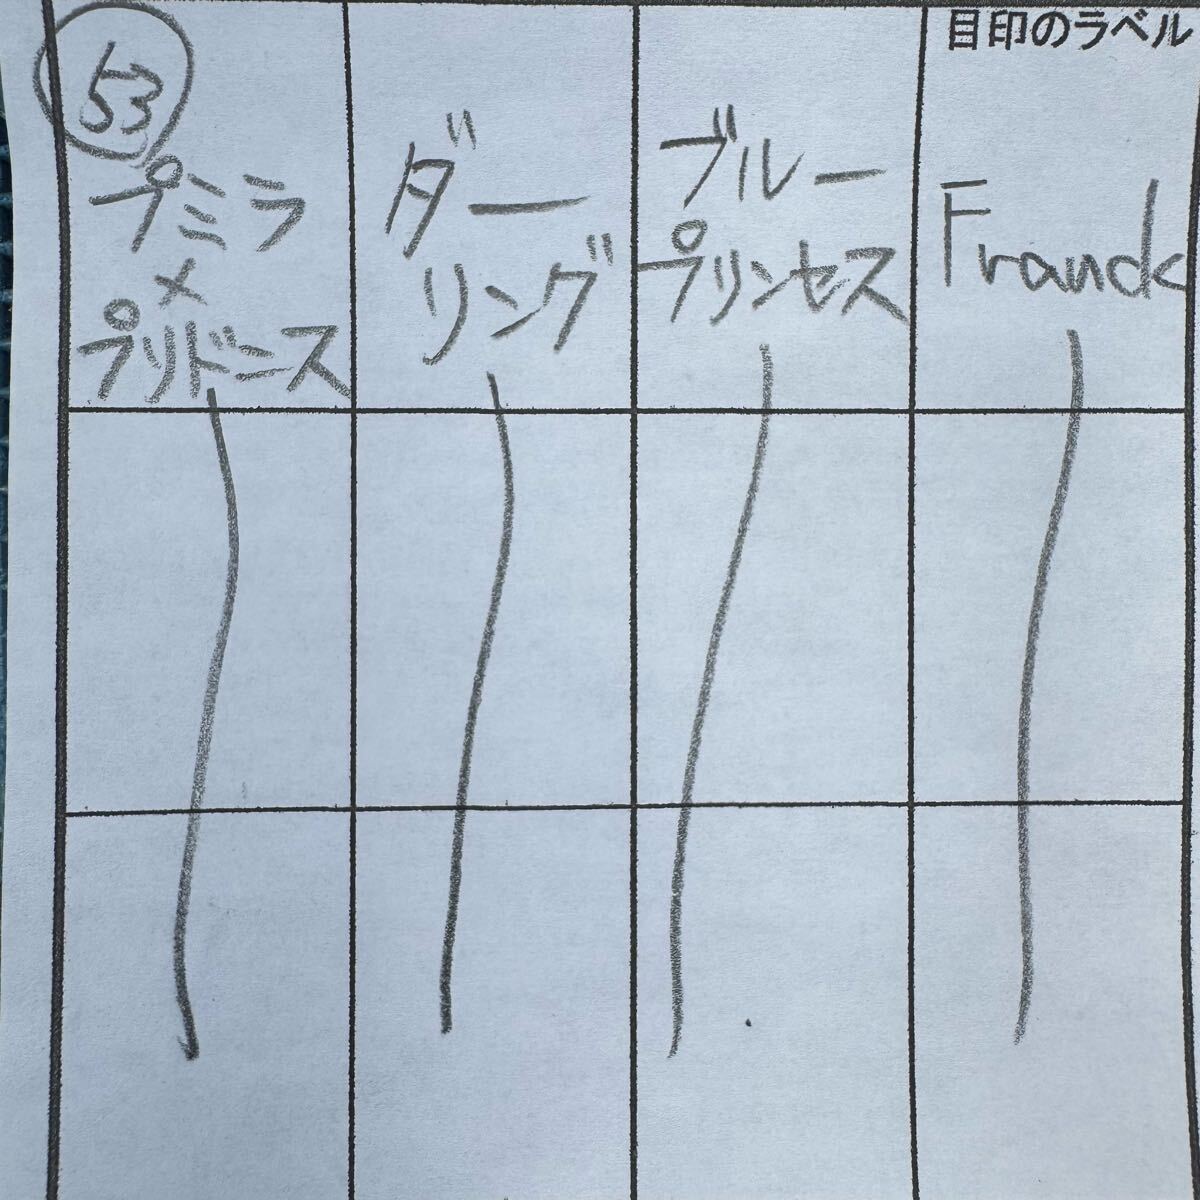 目印のラベル
53
プミラ
×
プリドニス
ダー
リング
ブルー
プリンセス
Franck